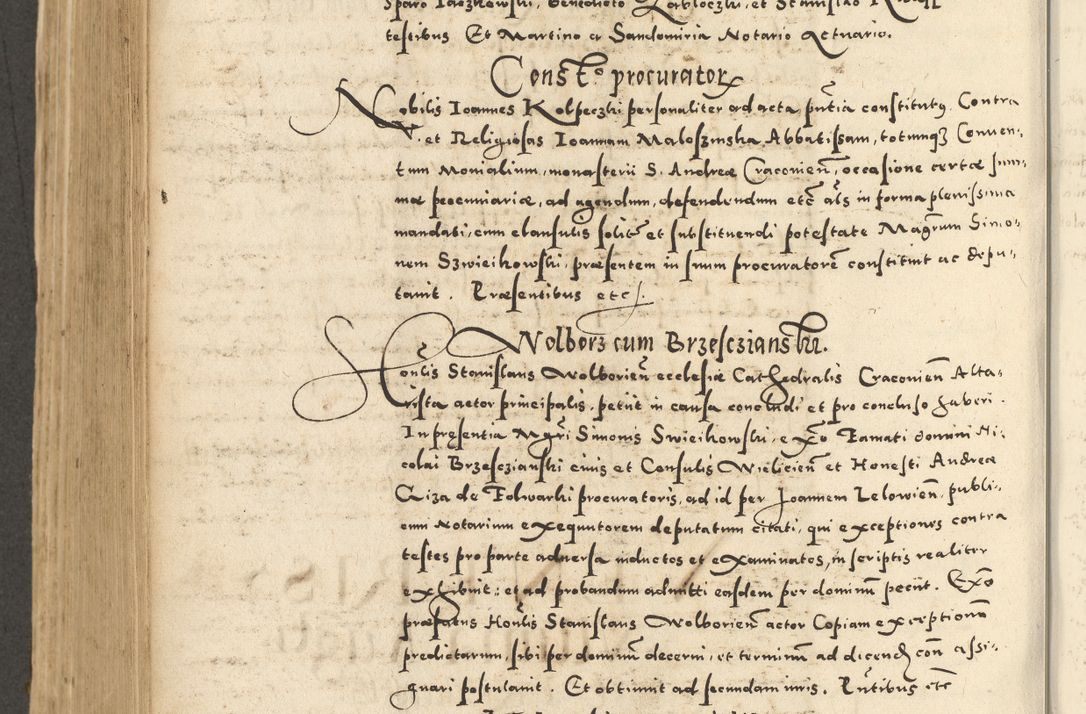 testibus Et Martino a Sandomiria Notario Actuario.
Const.º procurator
Nobilis Ioannes Kolpeczki personaliter ad acta pñtia constitutq Contra
V. et Religiosas Ioannam Maloszinska Abbatissam, totumqz Conuen-
tum Monialium, monasterii S. Andreæ Cracouieñ, occasione certæ sum-
mæ pecuniariæ, ad agendum, defendendum etc̃ al̃s in forma plenissima
mandati, cum clausulis solit̃ et substituendi potestate Magrum Simo-
nem Szwieikowski, præsentem in suum procuratorẽ constituit ac depu-
tauit. Præsentibus etc.
Wolborz cum Brzesczianski.
Honlis Stanislaus Wolborieñ ecclesiæ Cathedralis Cracouieñ Alta-
rista actor principalis, petiit in causa concludi et pro concluso haberi.
In presentia Mgri Simonis Swieikowski, ex̃o Famati domini Ni-
colai Brzesczianski ciuis et Consulis Wielicieñ et Honesti Andreæ
Giza de Folwarki procuratoris, ad id per Ioannem Lelowieñ, publi-
cum Notarium exequutorem deputatum citati, qui exceptiones contra
testes pro parte aduersa inductos et examinatos, in scriptis realiter
exhibuit: et ad probandum admitti easdem per dominũ peciit. Ex̃o
præfatus Honlis Stanislaus Wolborieñ actor Copiam exceptionũ
predictarum, sibi per dominũ decerni, et terminũ ad dicend coñ assi-
gnari postulauit. Et obtinuit ad secundam iuris. Pñtibus etc̃